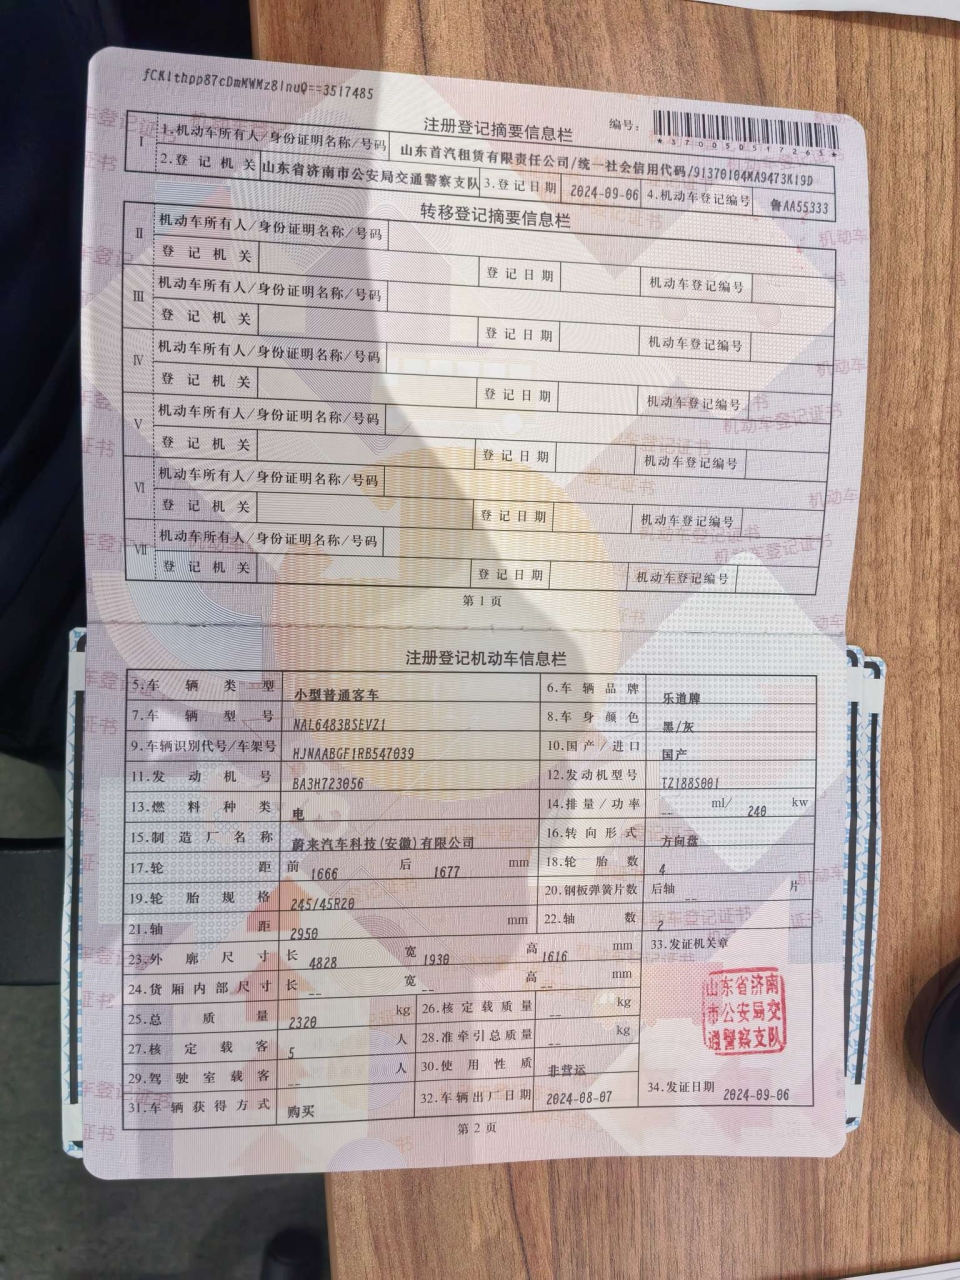 fCKlthpp87cDmMWMz8lnuQ==3517485
注册登记摘要信息栏
编号:
*370505517265*
I 1.机动车所有人/身份证明名称/号码 山东首汽租赁有限责任公司/统一社会信用代码/91370104MA9473K19D
2.登记机关 山东省济南市公安局交通警察支队 3.登记日期 2024-09-06 4.机动车登记编号 鲁AA55333
转移登记摘要信息栏
II 机动车所有人/身份证明名称/号码
登记机关 登记日期 机动车登记编号
III 机动车所有人/身份证明名称/号码
登记机关 登记日期 机动车登记编号
IV 机动车所有人/身份证明名称/号码
登记机关 登记日期 机动车登记编号
V 机动车所有人/身份证明名称/号码
登记机关 登记日期 机动车登记编号
VI 机动车所有人/身份证明名称/号码
登记机关 登记日期 机动车登记编号
VII 机动车所有人/身份证明名称/号码
登记机关 登记日期 机动车登记编号
第1页
注册登记机动车信息栏
5.车辆类型 小型普通客车 6.车辆品牌 乐道牌
7.车辆型号 NAL6483BSEVZ1 8.车身颜色 黑/灰
9.车辆识别代号/车架号 HJNAABGF1RB547039 10.国产/进口 国产
11.发动机号 BA3H723056 12.发动机型号 TZ188S001
13.燃料种类 电 14.排量/功率 -- ml/ 240 kw
15.制造厂名称 蔚来汽车科技(安徽)有限公司 16.转向形式 方向盘
17.轮距 前 1666 后 1677 mm 18.轮胎数 4
19.轮胎规格 245/45R20 20.钢板弹簧片数 后轴 -- 片
21.轴距 2950 mm 22.轴数 2
23.外廓尺寸 长 4828 宽 1930 高 1616 mm 33.发证机关章
24.货厢内部尺寸 长 -- 宽 -- 高 -- mm
25.总质量 2320 kg 26.核定载质量 -- kg
27.核定载客 5 人 28.准牵引总质量 -- kg
29.驾驶室载客 -- 人 30.使用性质 非营运
31.车辆获得方式 购买 32.车辆出厂日期 2024-08-07 34.发证日期 2024-09-06
山东省济南
市公安局交
通警察支队
第2页